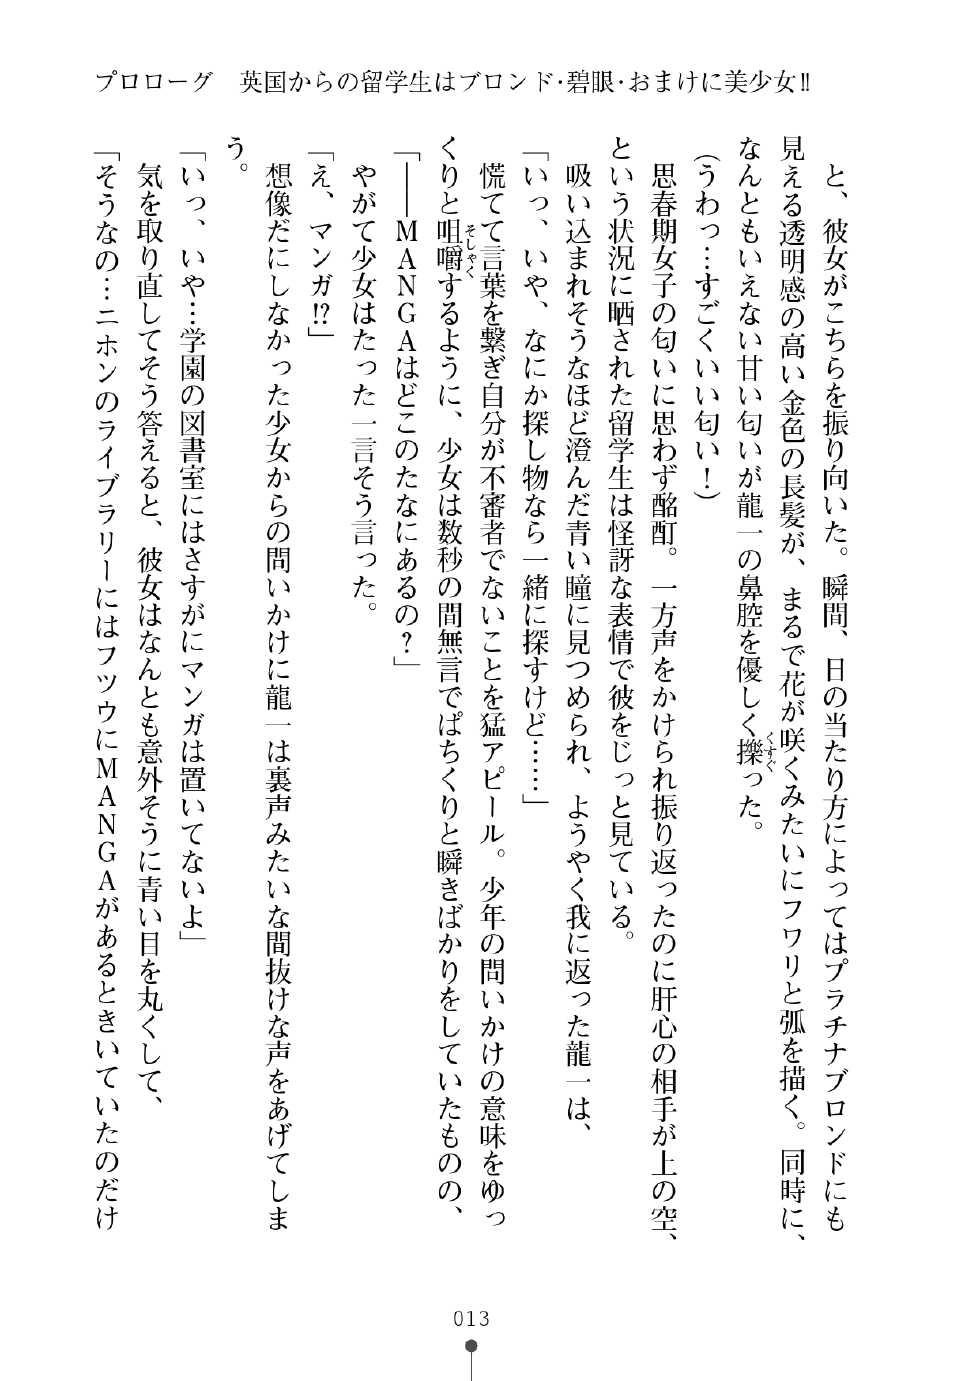 プロローグ　英国からの留学生はブロンド・碧眼・おまけに美少女!!
　と、彼女がこちらを振り向いた。瞬間、日の当たり方によってはプラチナブロンドにも
見える透明感の高い金色の長髪が、まるで花が咲くみたいにフワリと弧を描く。同時に、
なんともいえない甘い匂いが龍一の鼻腔を優しく擽った。
（うわっ…すごくいい匂い！）
　思春期女子の匂いに思わず酩酊。一方声をかけられ振り返ったのに肝心の相手が上の空、
という状況に晒された留学生は怪訝な表情で彼をじっと見ている。
　吸い込まれそうなほど澄んだ青い瞳に見つめられ、ようやく我に返った龍一は、
「いっ、いや、なにか探し物なら一緒に探すけど……」
　慌てて言葉を繋ぎ自分が不審者でないことを猛アピール。少年の問いかけの意味をゆっ
くりと咀嚼するように、少女は数秒の間無言でぱちくりと瞬きばかりをしていたものの、
「――ＭＡＮＧＡはどこのたなにあるの？」
　やがて少女はたった一言そう言った。
「え、マンガ!?」
　想像だにしなかった少女からの問いかけに龍一は裏声みたいな間抜けな声をあげてしま
う。
「いっ、いや…学園の図書室にはさすがにマンガは置いてないよ」
　気を取り直してそう答えると、彼女はなんとも意外そうに青い目を丸くして、
「そうなの…ニホンのライブラリーにはフツウにＭＡＮＧＡがあるときいていたのだけ
くすぐ
そしゃく
013